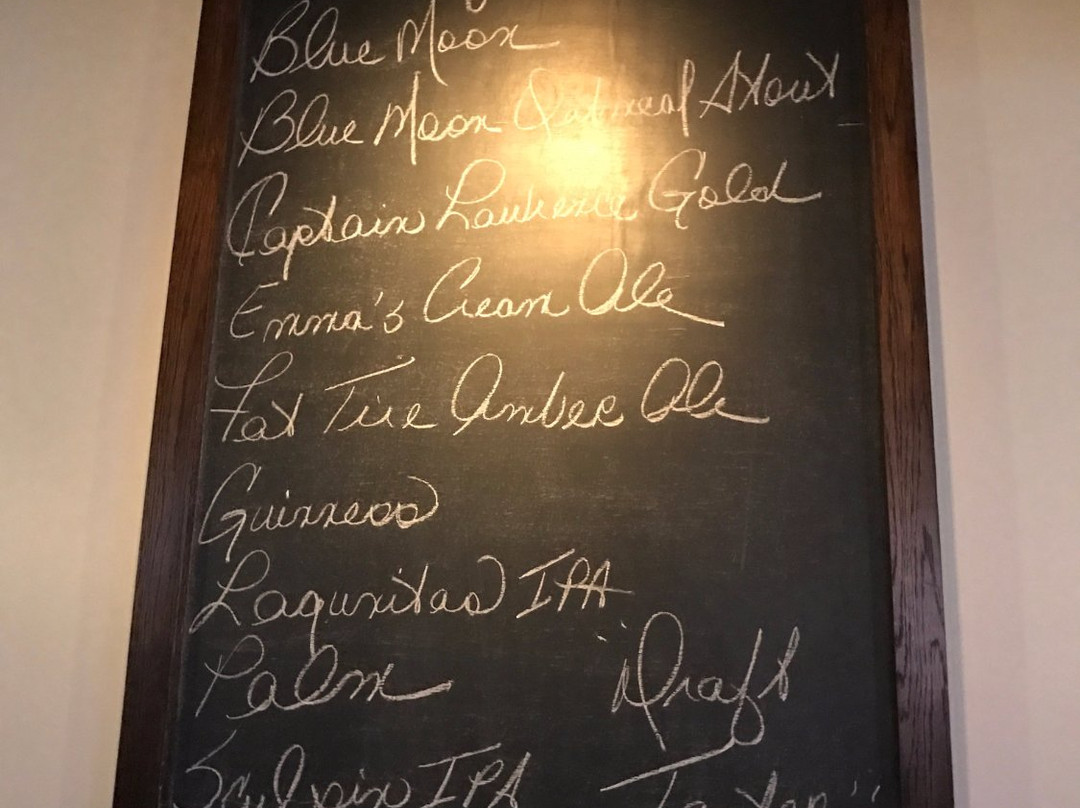 Blue Moon
Blue Moon Oatmeal Stout
Captain Lawrence Gold
Emma's Cream Ale
Fat Tire Amber Ale
Guinness
Lagunitas IPA
Palm
"Draft
Sculpin IPA